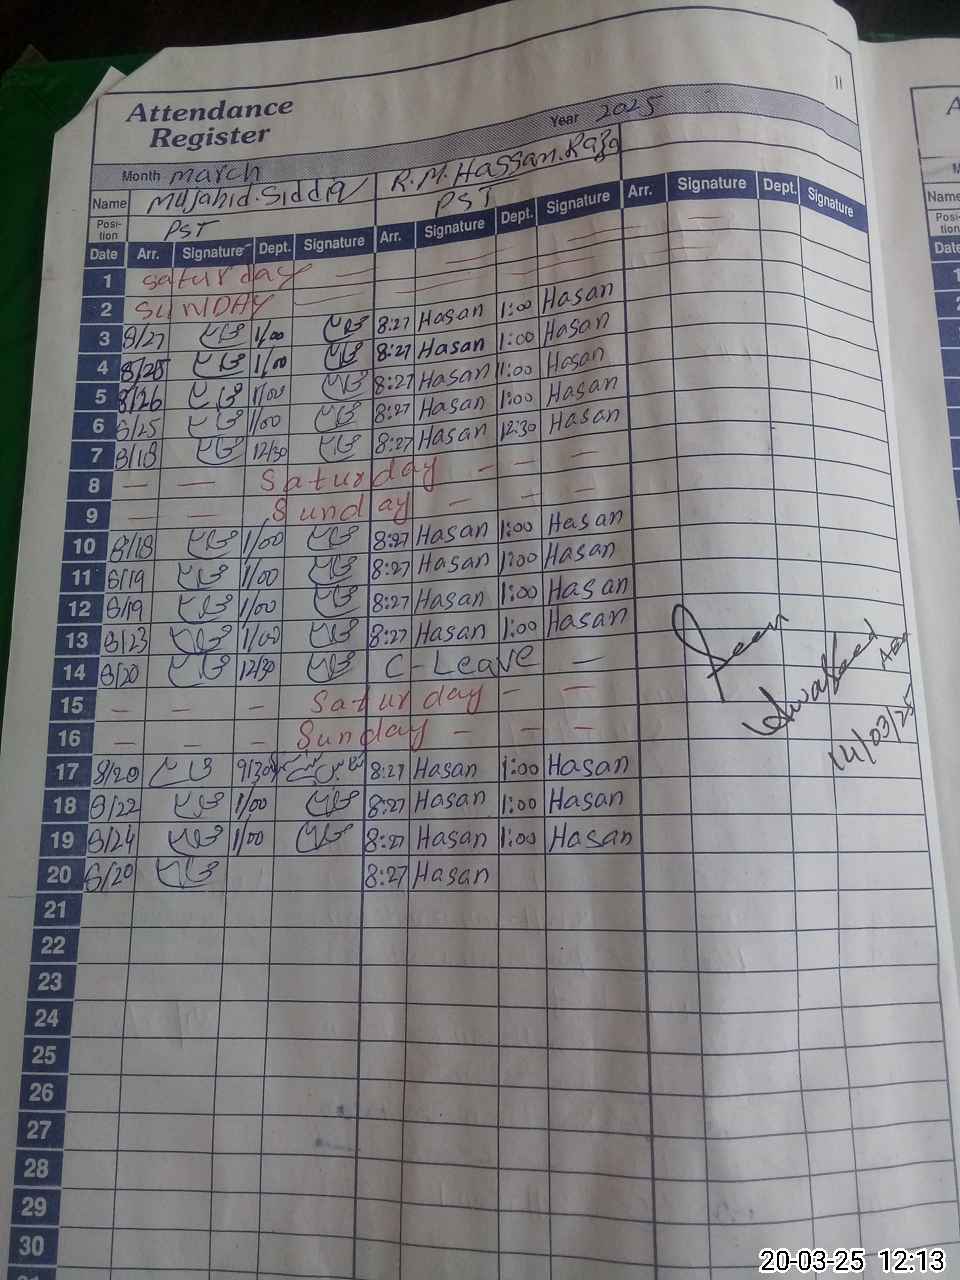 11
Attendance Register
Year 2025
Month March
Name Mujahid.Siddiq R.M.Hassan.Raza
Position PST PST
Date Arr. Signature Dept. Signature Arr. Signature Dept. Signature Arr. Signature Dept. Signature
1 Saturday — — — — — —
2 SUNDAY — — — — —
3 8/27 1/00 8:27 Hasan 1:00 Hasan
4 8/28 1/00 8:27 Hasan 1:00 Hasan
5 8/26 1/00 8:27 Hasan 1:00 Hasan
6 8/25 1/00 8:27 Hasan 1:00 Hasan
7 8/18 12/30 8:27 Hasan 12:30 Hasan
8 — — Saturday — — —
9 — — Sunday — — —
10 8/18 1/00 8:27 Hasan 1:00 Hasan
11 8/19 1/00 8:27 Hasan 1:00 Hasan
12 8/19 1/00 8:27 Hasan 1:00 Hasan
13 8/23 1/00 8:27 Hasan 1:00 Hasan
14 8/20 12/30 C-Leave —
15 — — — Saturday — —
16 — — — Sunday — — —
17 8/20 9/30 8:27 Hasan 1:00 Hasan
18 8/22 1/00 8:27 Hasan 1:00 Hasan
19 8/24 1/00 8:27 Hasan 1:00 Hasan
20 8/20 8:27 Hasan
14/03/25
21
22
23
24
25
26
27
28
29
30
20-03-25 12:13